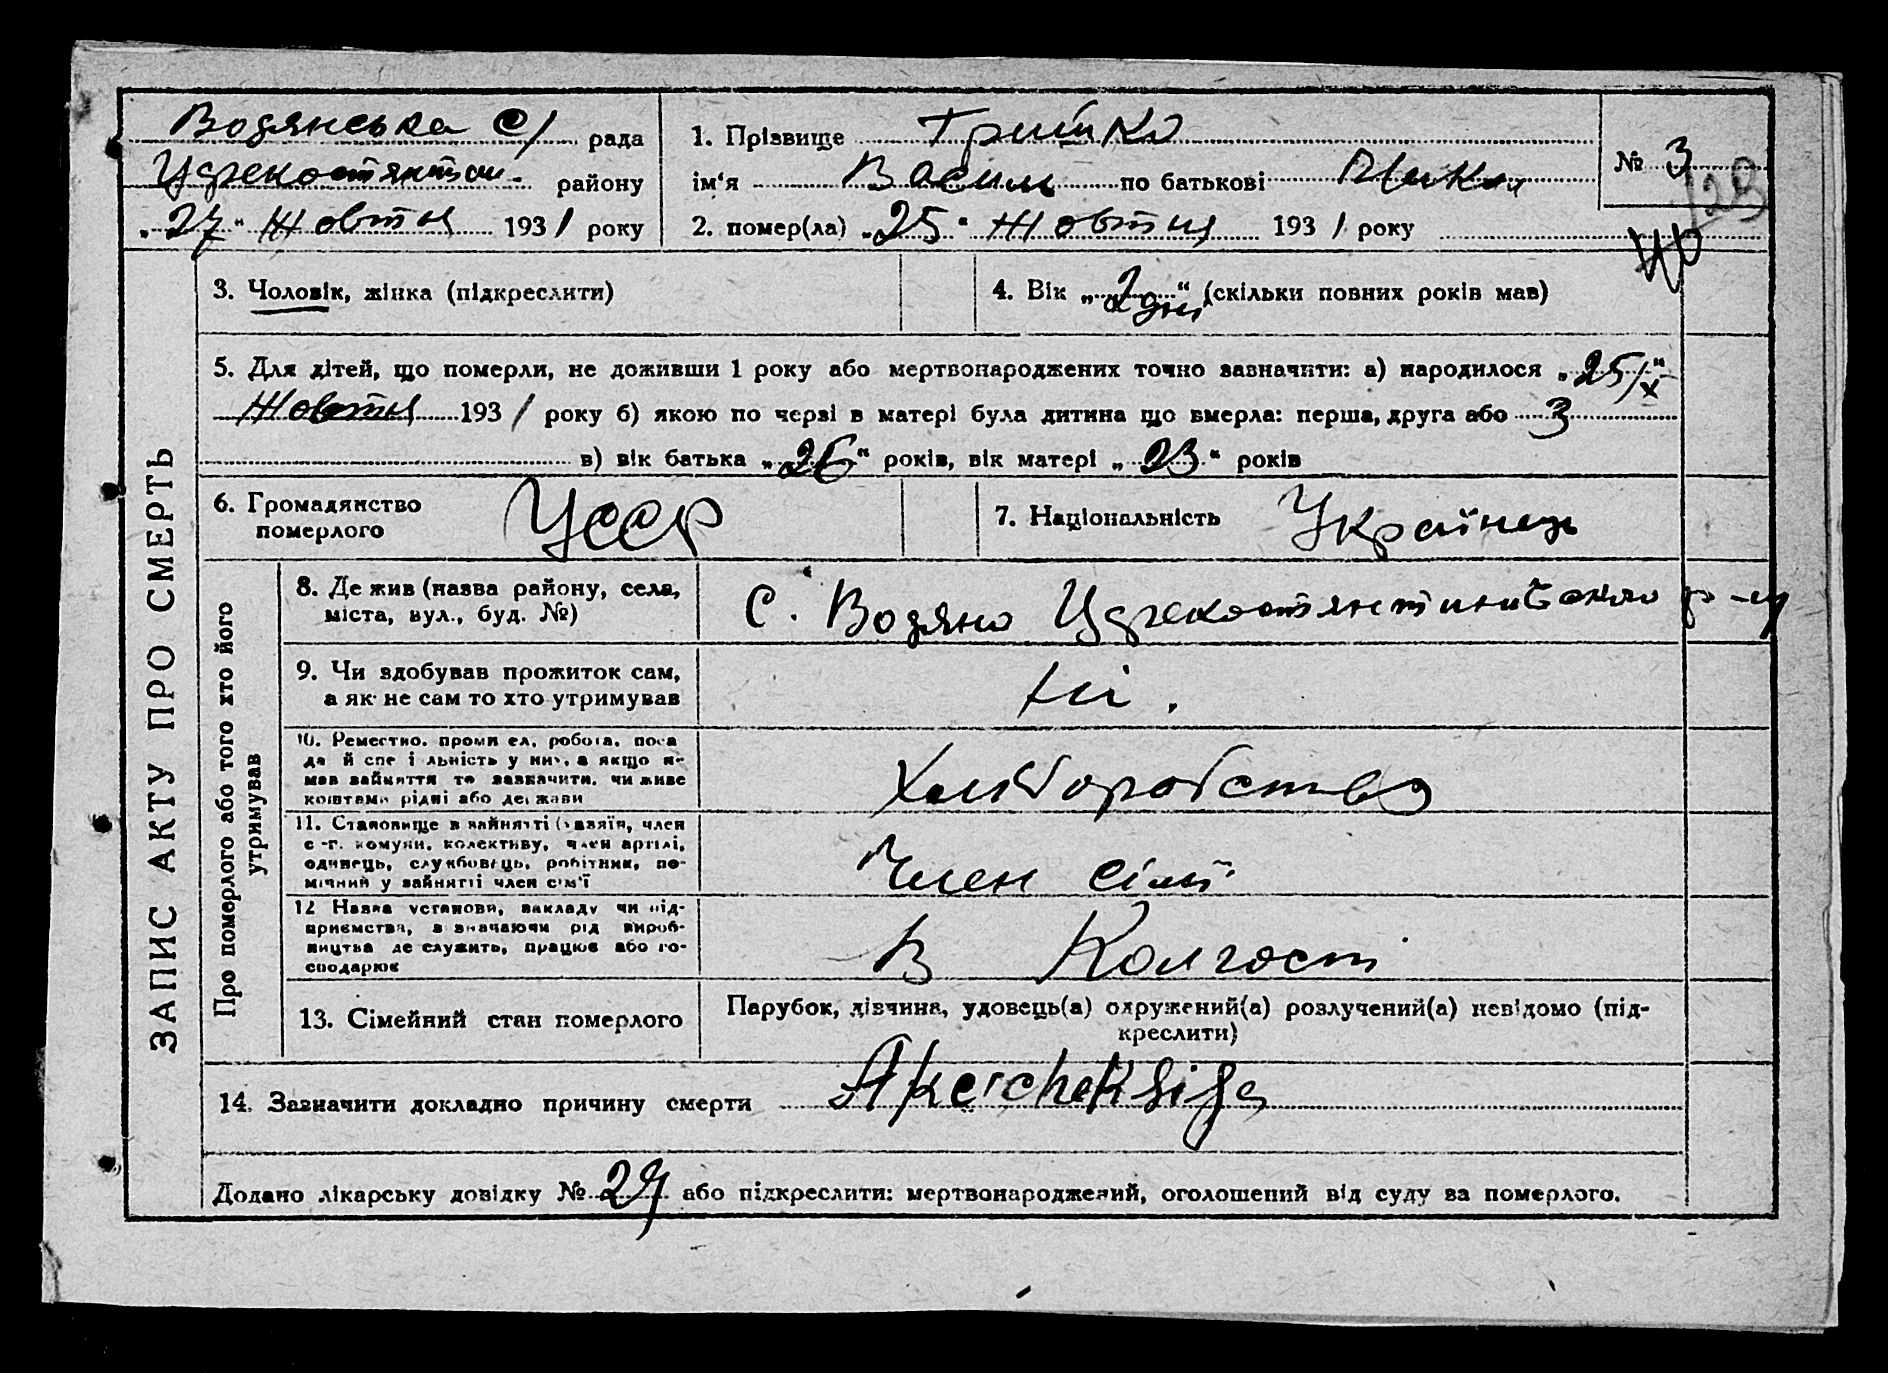 Водянська С/ рада
району
„27“ Жовтня 1931 року
1. Прізвище Гришко
ім‘я Василь по батькові
2. помер(ла) „25“ Жовтня 1931 року
№ 3
123
ЗАПИС АКТУ ПРО СМЕРТЬ
3. Чоловік, жінка (підкреслити)
4. Вік „2 дні“ (скільки повних років мав)
5. Для дітей, що померли, не доживши 1 року або мертвонароджених точно зазначити: а) народилося „25/X“
Жовтня 1931 року б) якою по черзі в матері була дитина що вмерла: перша, друга або 3
в) вік батька „26“ років, вік матері „23“ років
6. Громадянство
померлого
УССР
7. Національність Українець
Про померлого або того хто його
утримував
8. Де жив (назва району, села,
міста, вул., буд. №)
С. Водяно р-ну
9. Чи здобував прожиток сам,
а як не сам то хто утримував
Ні.
10. Реместно, промисел, робота, поса
да й спеціальність у ній, а якщо н-
мав зайняття то зазначити, чи живе
коштами рідні або держави
Хліборобство
11. Становище в зайнятті (хазяїн, член
с.-г. комуни, колективу, член артілі,
одинець, службовець, робітник, по-
мічний у зайнятті член сім‘ї
Член сімї
12 Назва установи, закладу чи під-
приємства, зазначаючи рід вироб-
ництва де служить, працює або го-
сподарює
В Колгоспі
13. Сімейний стан померлого
Парубок, дівчина, удовець(а) одружений(а) розлучений(а) невідомо (під-
креслити)
14. Зазначити докладно причину смерти
Додано лікарську довідку № 29 або підкреслити: мертвонароджений, оголошений від суду за померлого.